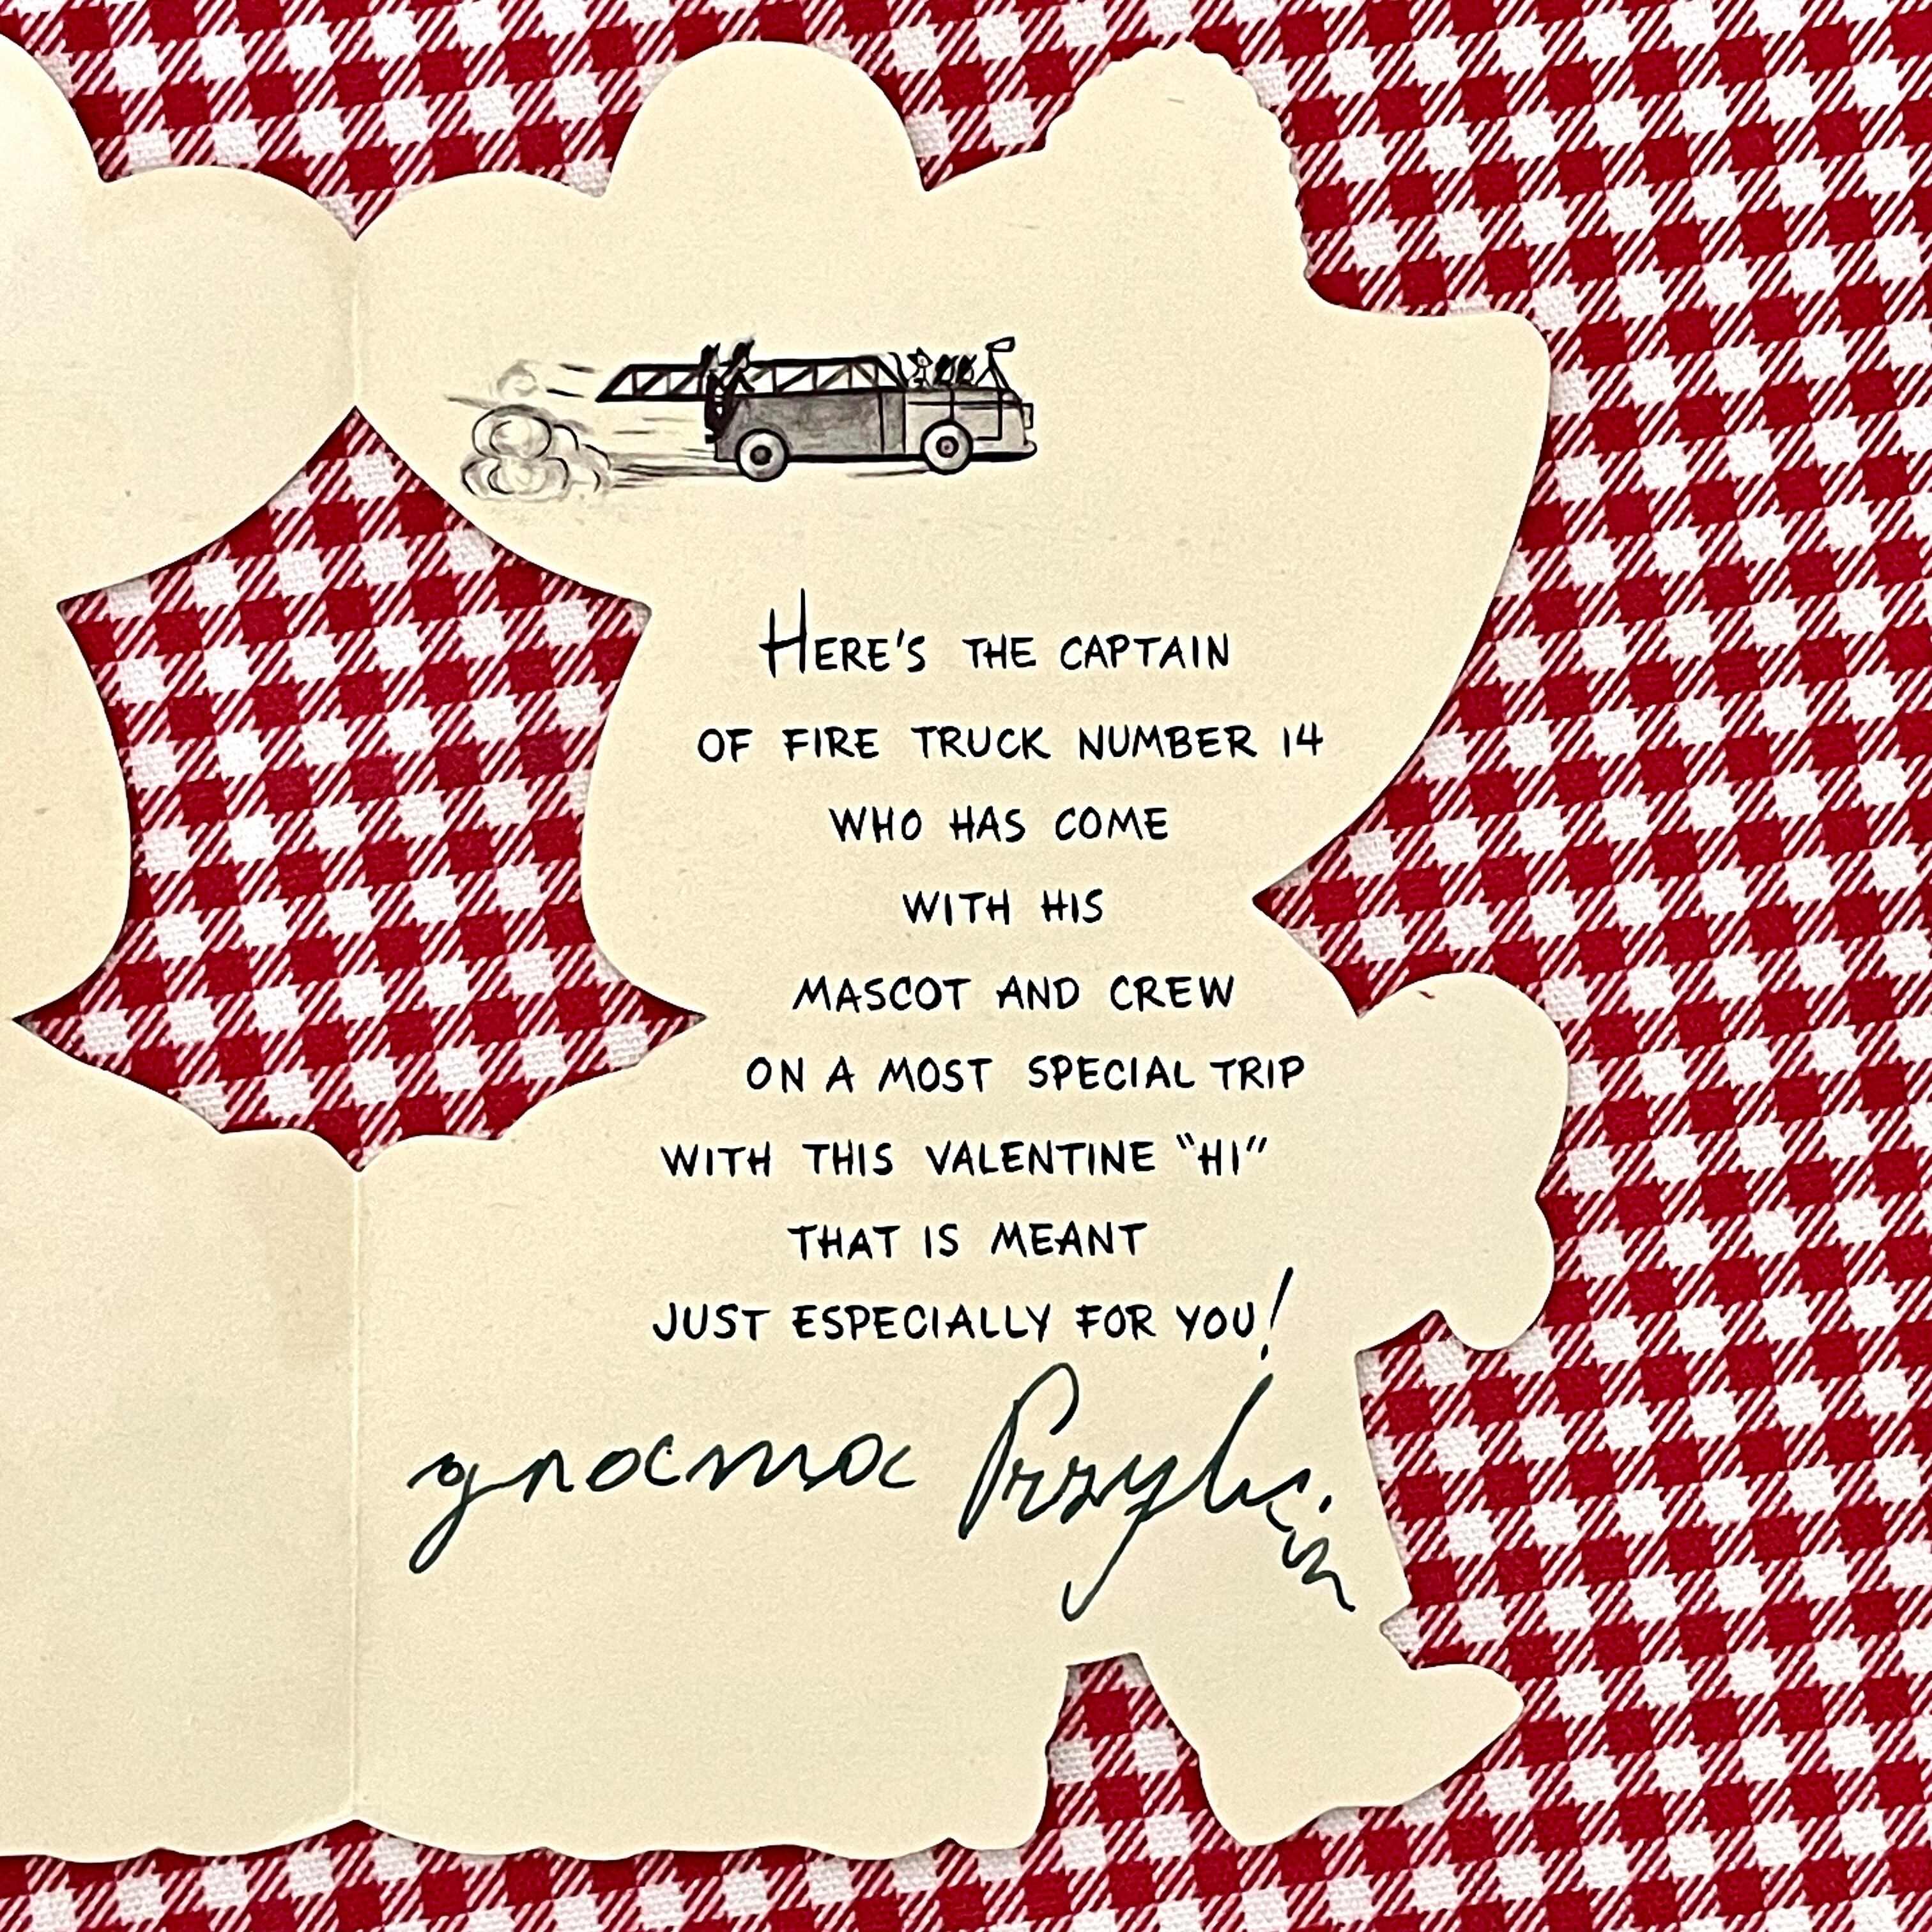 HERE'S THE CAPTAIN
OF FIRE TRUCK NUMBER 14
WHO HAS COME
WITH HIS
MASCOT AND CREW
ON A MOST SPECIAL TRIP
WITH THIS VALENTINE "HI"
THAT IS MEANT
JUST ESPECIALLY FOR YOU!